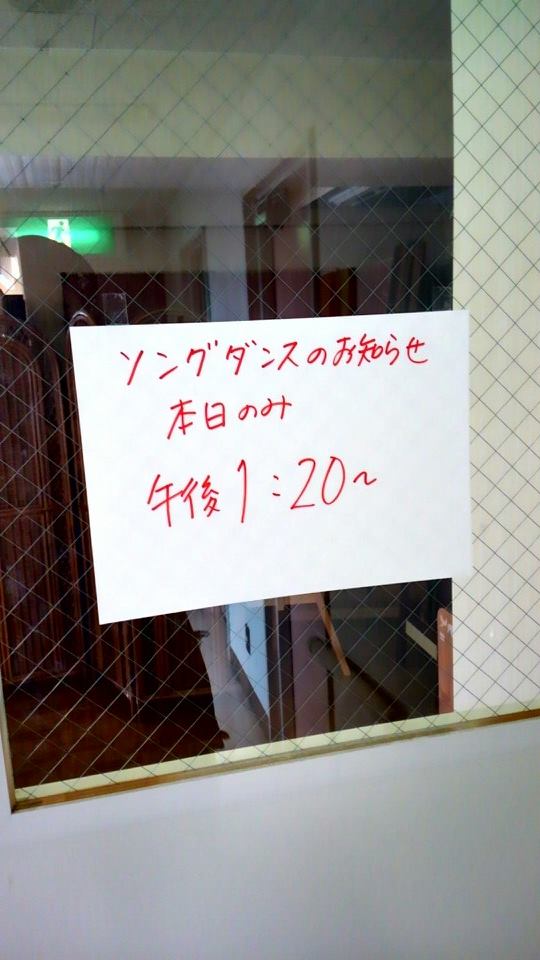 ソングダンスのお知らせ
本日のみ
午後1:20~